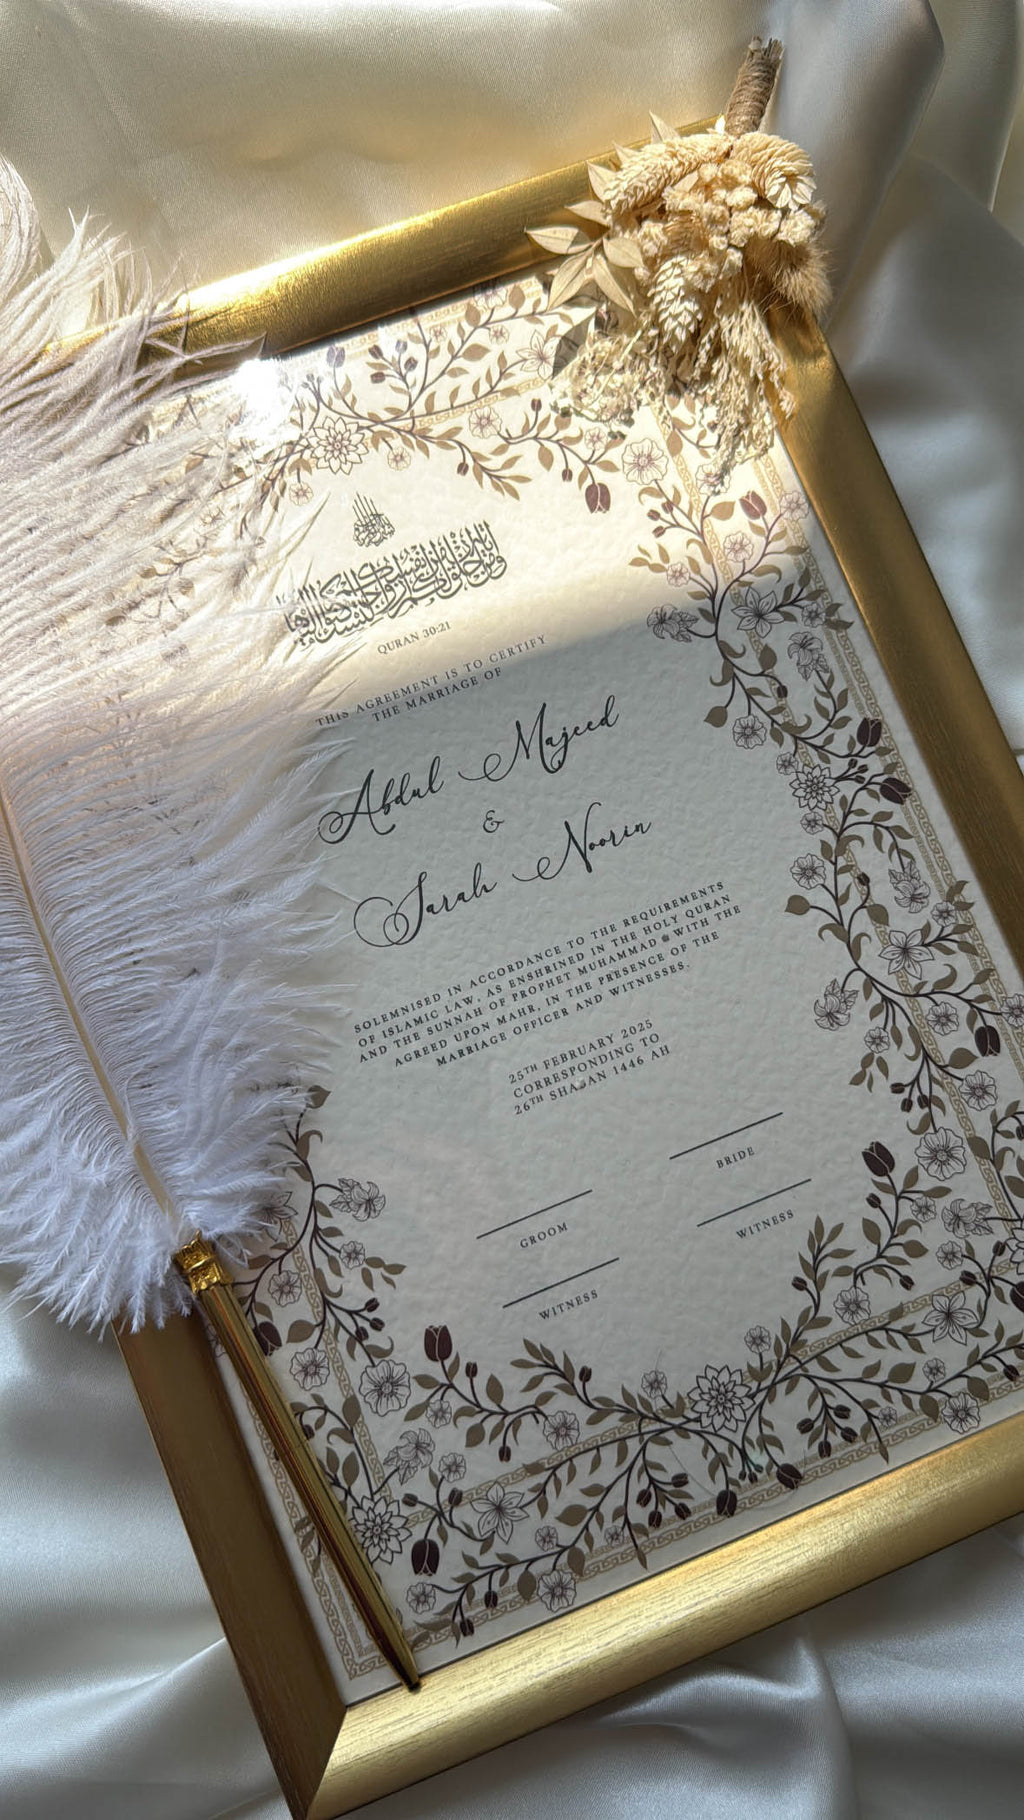 بسم الله الرحمن الرحيم
ومن آياته أن خلق لكم من أنفسكم أزواجا لتسكنوا إليها
QURAN 30:21
THIS AGREEMENT IS TO CERTIFY
THE MARRIAGE OF
Abdul Majeed
&
Sarah Noorin
SOLEMNISED IN ACCORDANCE TO THE REQUIREMENTS
OF ISLAMIC LAW, AS ENSHRINED IN THE HOLY QURAN
AND THE SUNNAH OF PROPHET MUHAMMAD ﷺ WITH THE
AGREED UPON MAHR, IN THE PRESENCE OF THE
MARRIAGE OFFICER AND WITNESSES.
25TH FEBRUARY 2025
CORRESPONDING TO
26TH SHABAN 1446 AH
BRIDE
GROOM
WITNESS
WITNESS